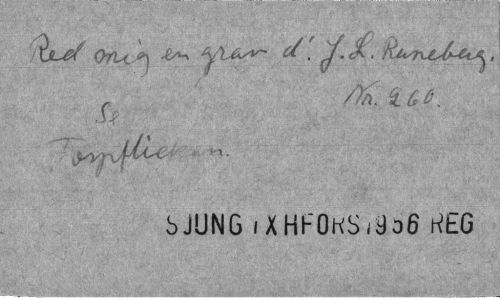 Red mig en grav d:. J. L. Runeberg.
Nr. 260.
Se
Torpflickan.
SJUNG IX HFORS 1956 REG